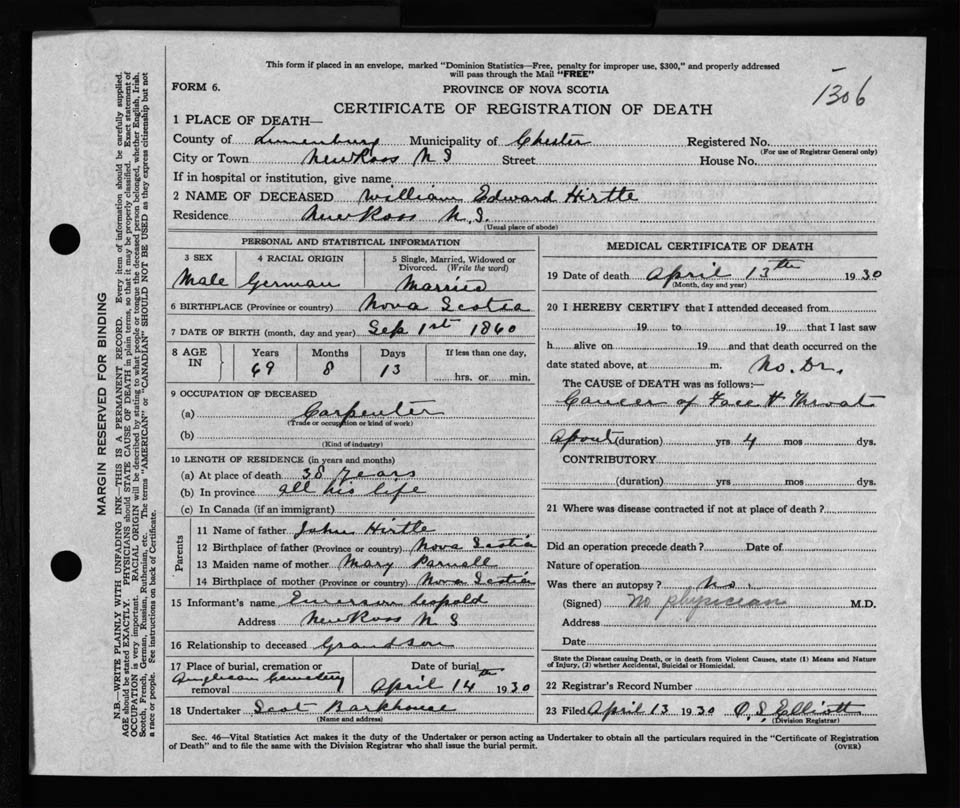 This form if placed in an envelope, marked "Dominion Statistics—Free, penalty for improper use, $300," and properly addressed
will pass through the Mail "FREE"
FORM 6.
PROVINCE OF NOVA SCOTIA
1306
CERTIFICATE OF REGISTRATION OF DEATH
1 PLACE OF DEATH—
County of Lunenburg Municipality of Chester Registered No.
(For use of Registrar General only)
City or Town New Ross N S Street House No.
If in hospital or institution, give name
2 NAME OF DECEASED William Edward Hirtle
Residence New Ross N.S.
(Usual place of abode)
PERSONAL AND STATISTICAL INFORMATION
3 SEX 4 RACIAL ORIGIN 5 Single, Married, Widowed or Divorced. (Write the word)
Male German Married
6 BIRTHPLACE (Province or country) Nova Scotia
7 DATE OF BIRTH (month, day and year) Sep 1st 1860
8 AGE IN Years Months Days If less than one day,
69 8 13 hrs. or min.
9 OCCUPATION OF DECEASED
(a) Carpenter
(Trade or occupation or kind of work)
(b)
(Kind of industry)
10 LENGTH OF RESIDENCE (in years and months)
(a) At place of death 38 years
(b) In province all his life
(c) In Canada (if an immigrant)
Parents
11 Name of father John Hirtle
12 Birthplace of father (Province or country) Nova Scotia
13 Maiden name of mother Mary Parnell
14 Birthplace of mother (Province or country) Nova Scotia
15 Informant's name Emerson Leopold
Address New Ross N S
16 Relationship to deceased Grandson
17 Place of burial, cremation or removal Anglican Cemetery Date of burial April 14th 1930
18 Undertaker Scot Barkhouse
(Name and address)
MEDICAL CERTIFICATE OF DEATH
19 Date of death April 13th 1930
(Month, day and year)
20 I HEREBY CERTIFY that I attended deceased from
19 to 19 that I last saw
h alive on 19 and that death occurred on the
date stated above, at m. No. Dr.
The CAUSE of DEATH was as follows:—
Cancer of Face & Throat
About (duration) yrs 4 mos dys.
CONTRIBUTORY
(duration) yrs mos dys.
21 Where was disease contracted if not at place of death?
Did an operation precede death? Date of
Nature of operation
Was there an autopsy? No.
(Signed) No physician M.D.
Address
Date
State the Disease causing Death, or in death from Violent Causes, state (1) Means and Nature
of Injury, (2) whether Accidental, Suicidal or Homicidal.
22 Registrar's Record Number
23 Filed April 13 1930 O. S. Elliott
(Division Registrar)
Sec. 46—Vital Statistics Act makes it the duty of the Undertaker or person acting as Undertaker to obtain all the particulars required in the "Certificate of Registration
of Death" and to file the same with the Division Registrar who shall issue the burial permit.
(OVER)
MARGIN RESERVED FOR BINDING
N.B.—WRITE PLAINLY WITH UNFADING INK—THIS IS A PERMANENT RECORD. Every item of information should be carefully supplied.
AGE should be stated EXACTLY. PHYSICIANS should STATE CAUSE OF DEATH in plain terms, so that it may be properly classified. Exact statement of
OCCUPATION is very important. RACIAL ORIGIN will be described by stating to what people or tongue the deceased person belonged, whether English, Irish,
Scotch, French, German, Russian, Ruthenian, etc. The terms "AMERICAN" or "CANADIAN" SHOULD NOT BE USED as they express citizenship but not
a race or people. See instructions on back of Certificate.